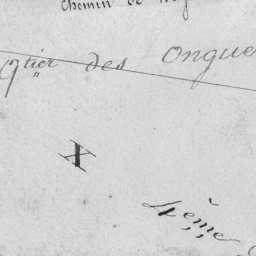 Chemin de
Qtier des
X
4ème